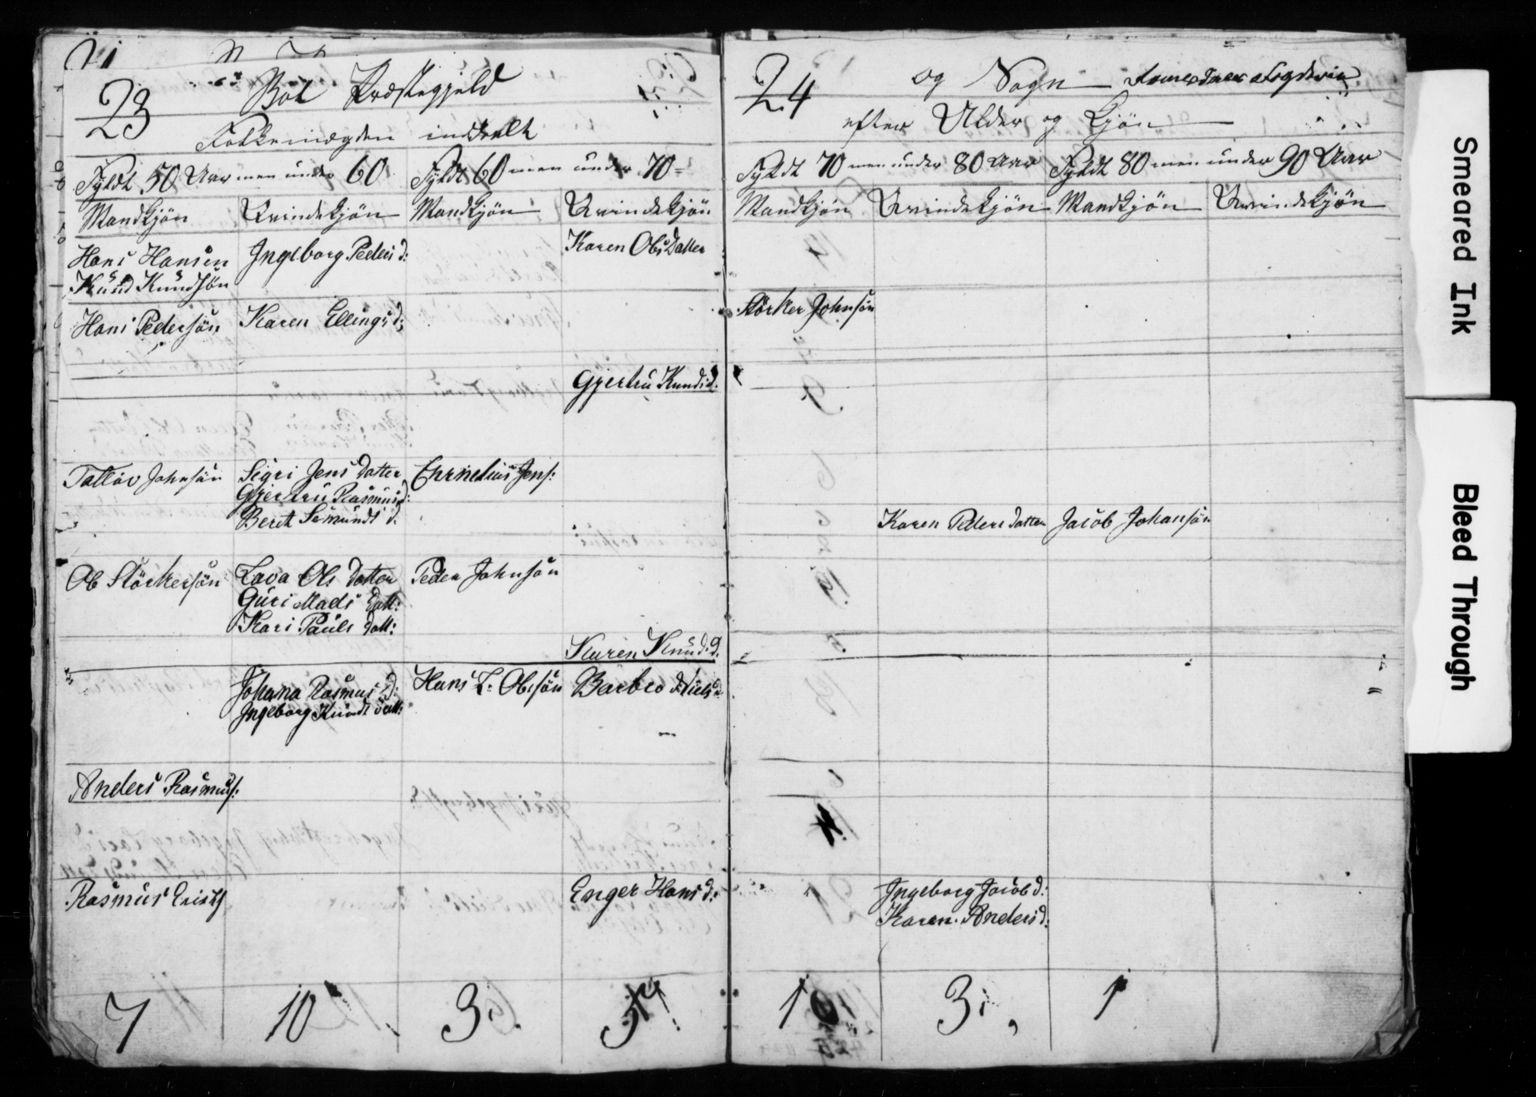 23
Boe Præstegjeld
Folkemægden inddeelt
Fyldt 50 Aar men under 60
Fyldt 60 men under 70
Mandkjøn Qvindekjøn Mandkjøn Qvindekjøn
Hans Hansen Ingeborg Peders d: Karen Ols Datter
Knud Knudsøn
Hans Pedersøn Karen Ellings d:
Gjertru Knuds d.
Tolløv Johnsøn Sigri Jens Datter Cornelius Jens:
Gjertru Rasmus d:
Berit Semunds d.
Ole Størkersøn Lava Ols Datter Peder Johnsøn
Guri Mads Datt:
Kari Pauls Datt:
Karen Knuds d.
Johana Rasmus d: Hans L: Olesøn Barbro Niels
Ingeborg Knuds Datt:
Anders Rasmus:
Rasmus Erichs Enger Hans d:
7 10 3. 5
24
og Sogn
efter Alder og Kjøn
Fyldt 70 men under 80 Aar Fyldt 80 men under 90 Aar
Mandkjøn Qvindekjøn Mandkjøn Qvindekjøn
Størker Johnsøn
Karen Peders Datter Jacob Johansøn
Ingeborg Jacob d:
Karen Anders d:
1 3. 1
Smeared Ink
Bleed Through